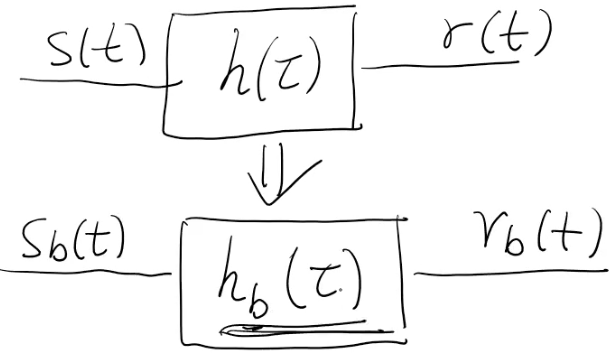 s(t) h(τ) r(t)
⇓
s_b(t) h_b(τ) r_b(t)